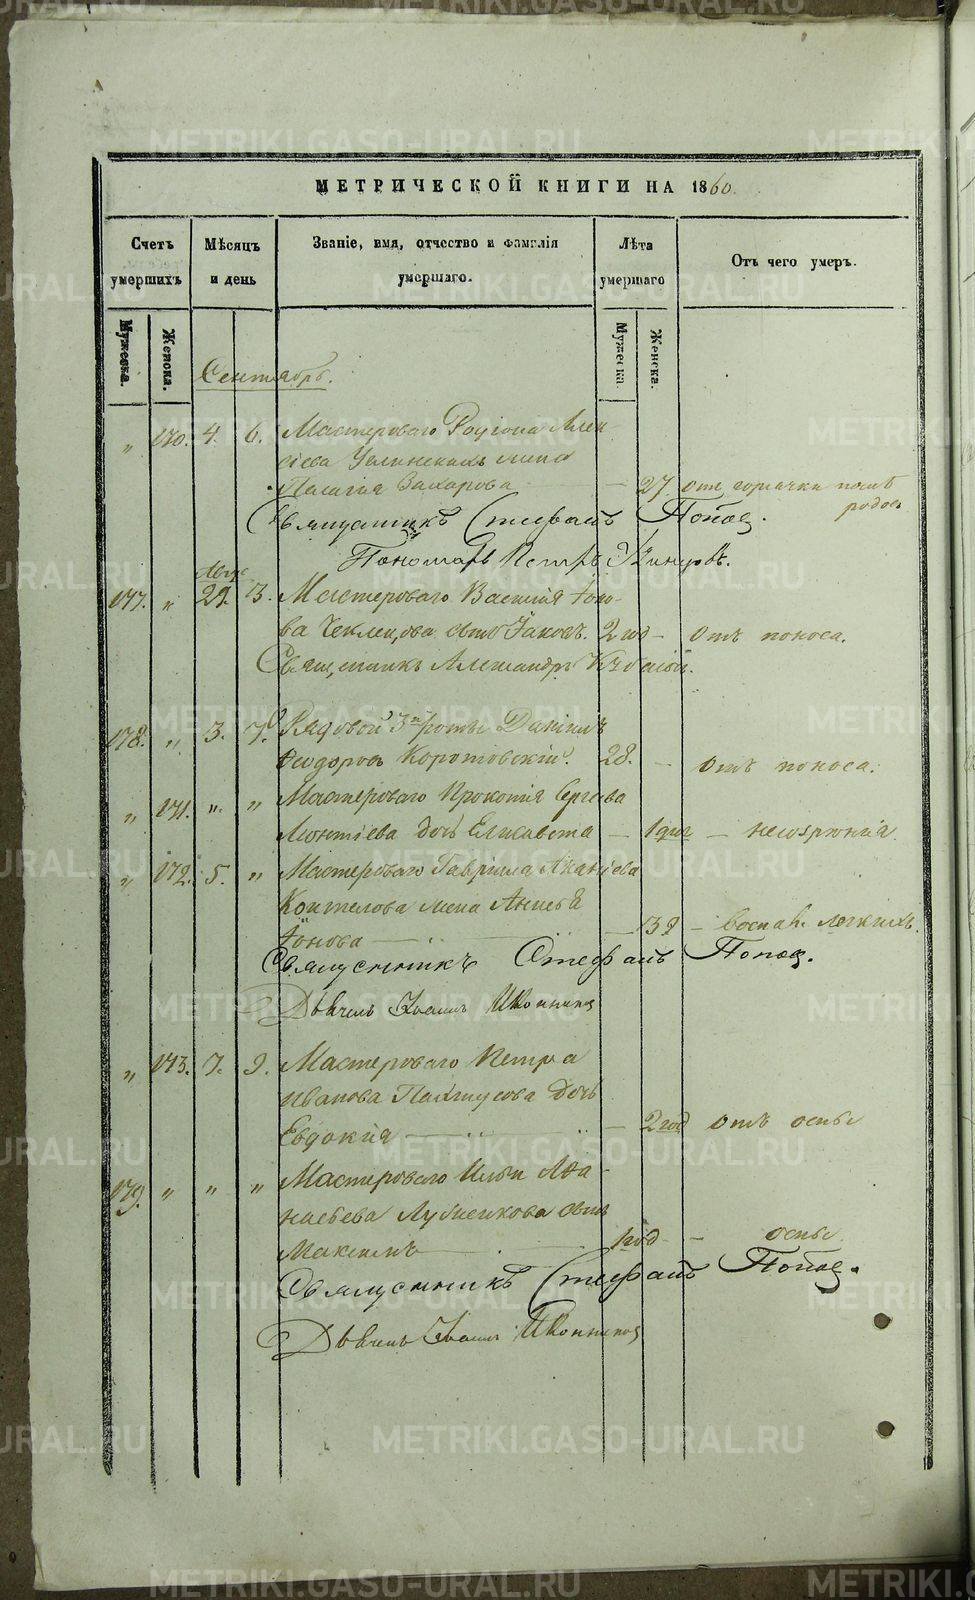 МЕТРИЧЕСКОЙ КНИГИ НА 1860.
Счетъ умершихъ
Мѣсяцъ и день
Званіе, имя, отчество и фамилія умершаго.
Лѣта умершаго
Отъ чего умеръ.
Мужеска.
Женска.
Мужеска.
Женска.
Сентябрь.
„ 170. 4. 6. Мастероваго Родіона Алек-
сіева жена
Пелагія Захарова — 27. отъ горячки послѣ
родовъ
Священникъ Стефанъ Поповъ.
Пономарь Петръ
Авгус
177. „ 29. 3. Мастероваго Василія Іоно-
ва сынъ Іаковъ. 2 год — отъ поноса.
Священникъ Александръ
178. „ 3. 7. Рядовой 3й роты Даніилъ
Феодоровъ Коротовскій. 28. — отъ поноса.
„ 171. „ „ Мастероваго Прокопія Сергѣева
Леонтіева дочь Елисавета — 1 дня — несозрѣнія
„ 172. 5. „ Мастероваго Гавріила
жена
Іонова — воспал. легкихъ.
Священникъ Стефанъ Поповъ.
Дьячекъ Іоаннъ Иконниковъ
„ 173. 7. 9. Мастероваго Петра
Иванова дочь
Евдокія — 2 год отъ оспы
179. „ „ „ Мастероваго Ильи Аѳа-
насьева сынъ
Максимъ — 1 год — оспы.
Священникъ Стефанъ Поповъ.
Дьячекъ Іоаннъ Иконниковъ
METRIKI.GASO-URAL.RU